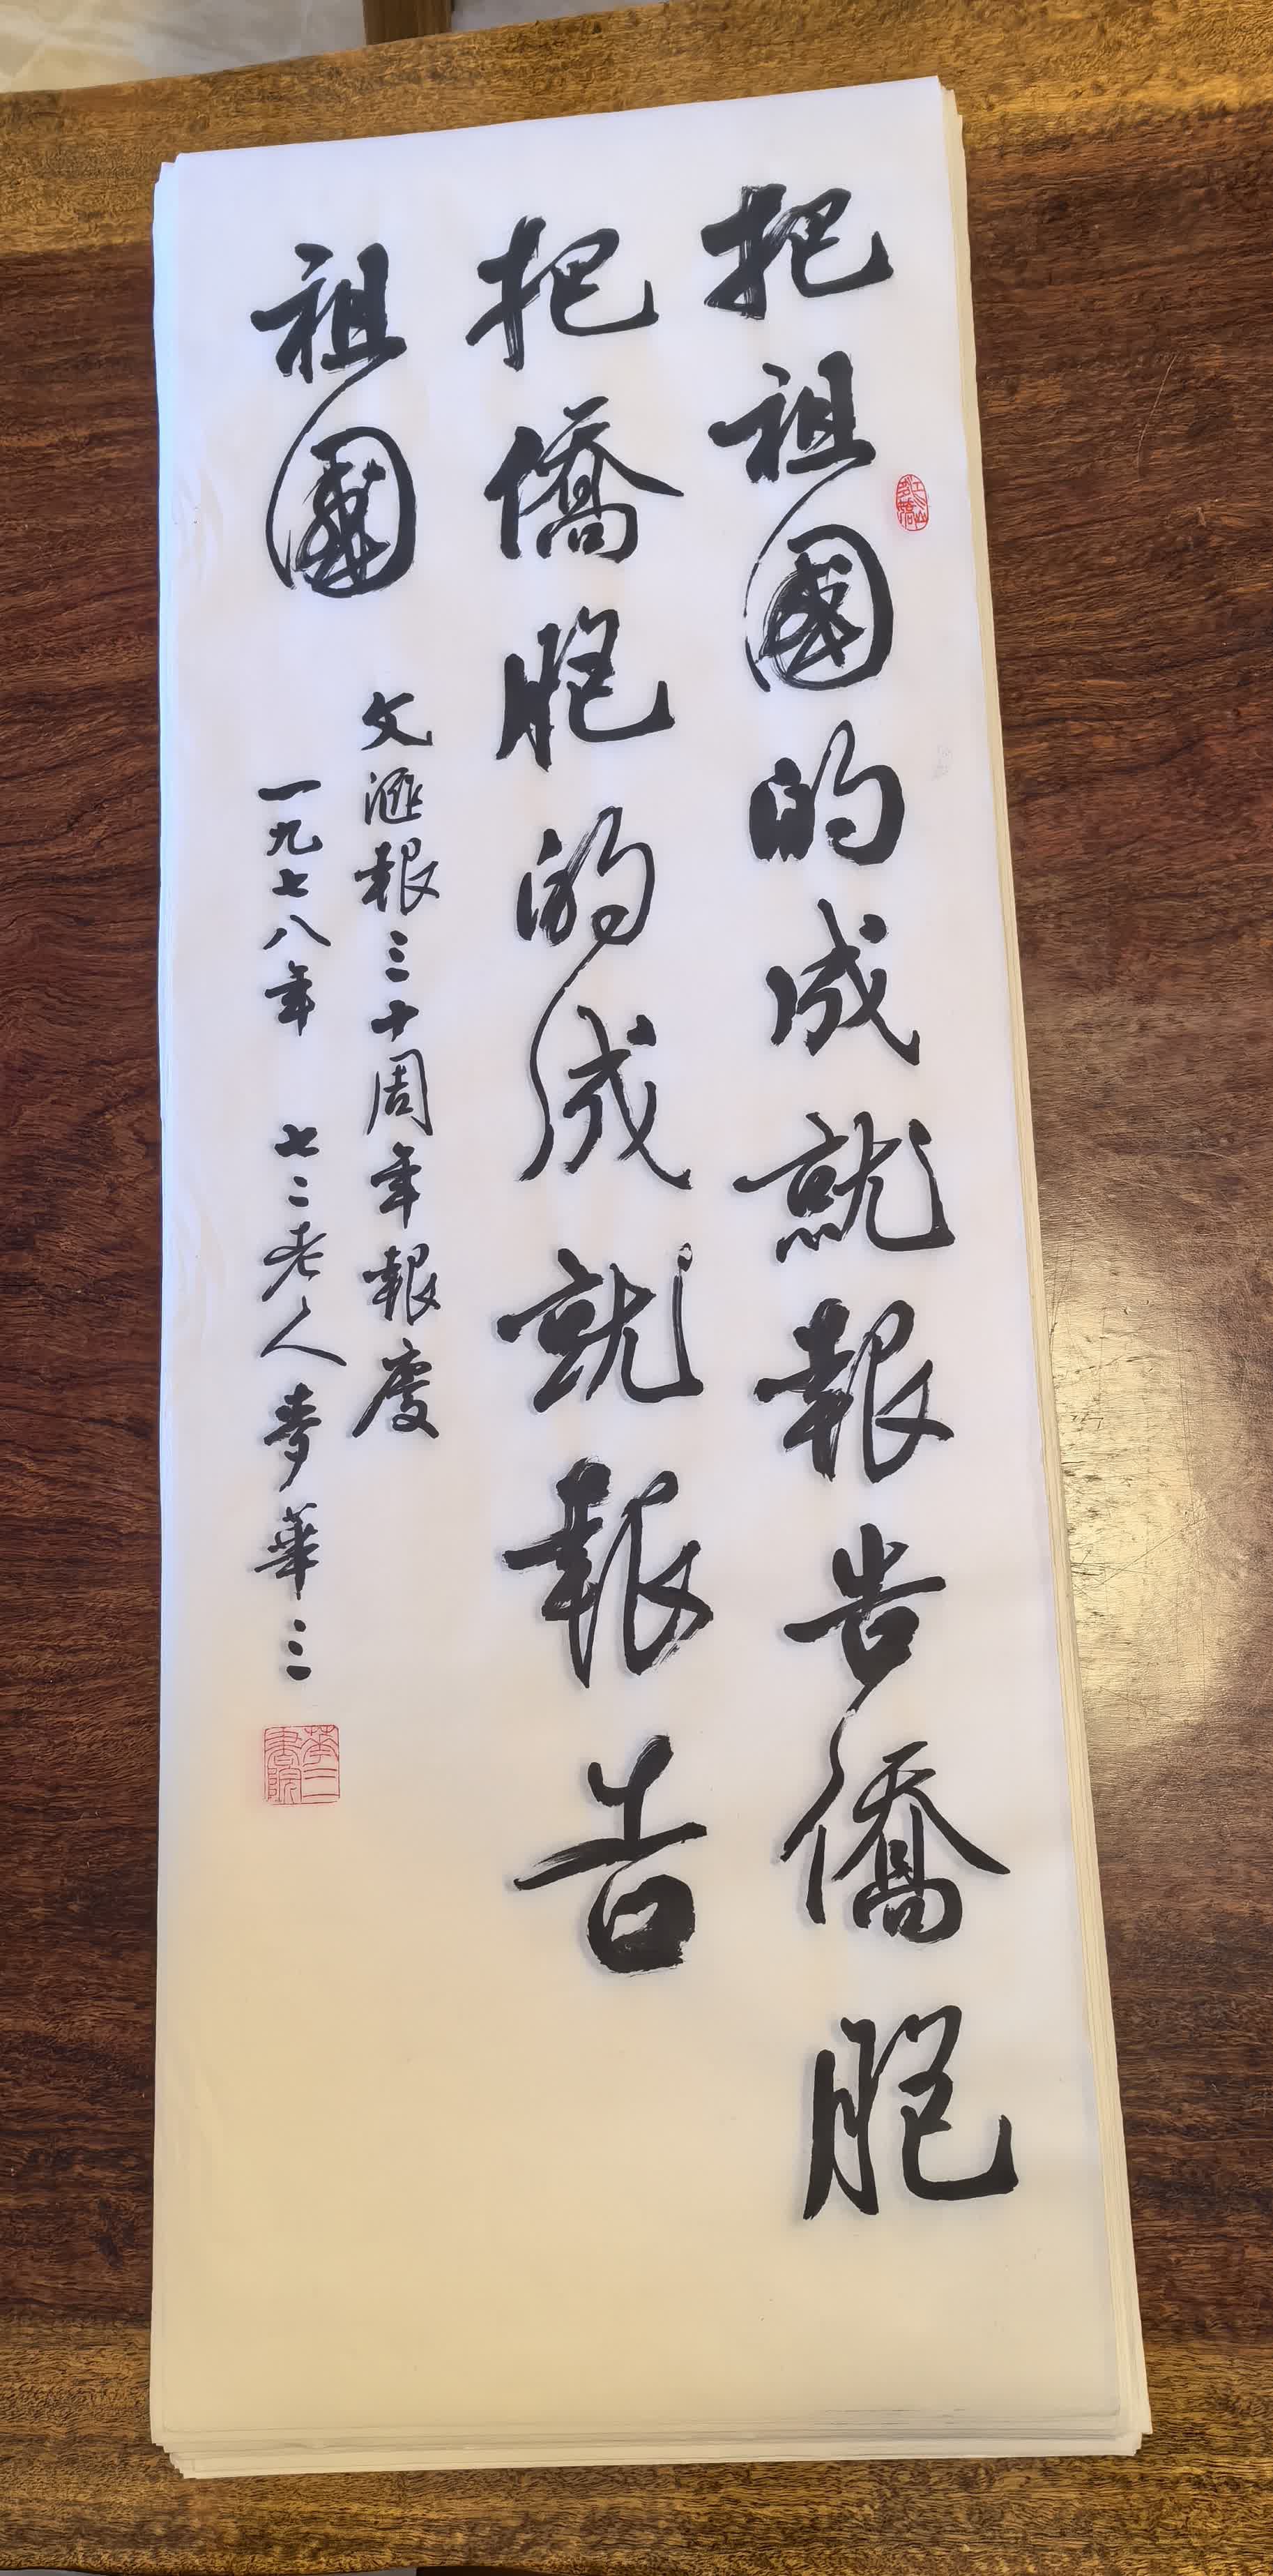 把祖國的成就報告僑胞
把僑胞的成就報告
祖國
文滙報三十周年報慶
一九七八年 七二老人麥華三
華三書院